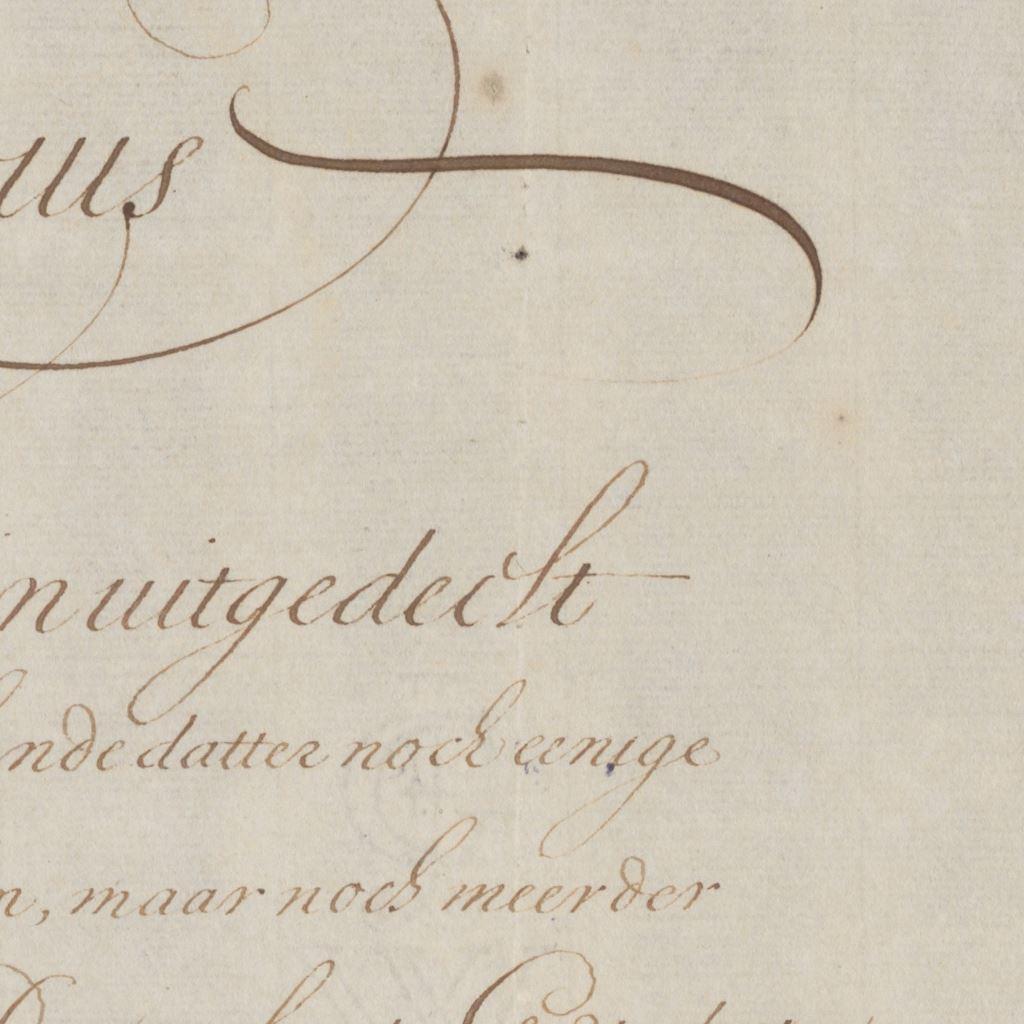 uus
n uitgedeckt
nde datter noch eenige
n, maar noch meerder